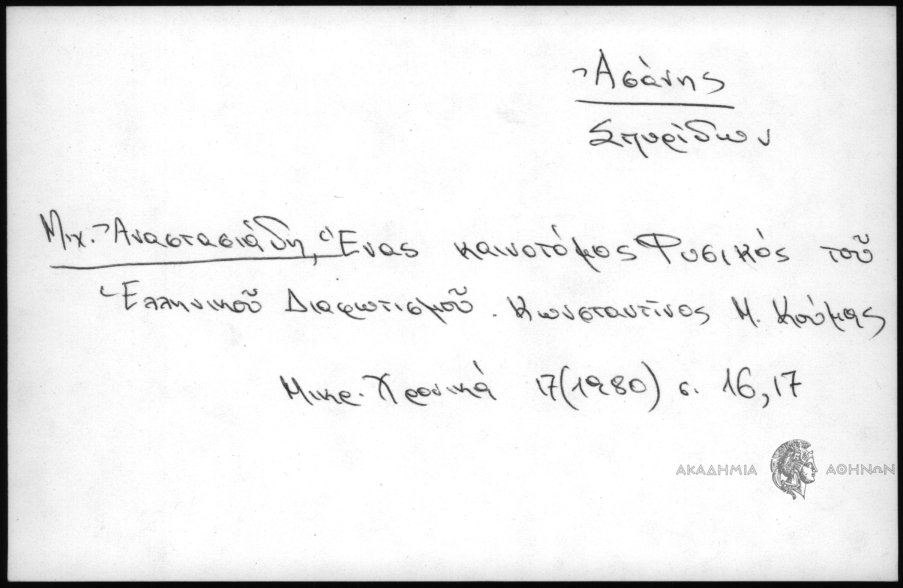 Ἀσάνης
Σπυρίδων
Μιχ. Ἀναστασιάδη, Ἕνας καινοτόμος Φυσικός τοῦ
Ἑλληνικοῦ Διαφωτισμοῦ. Κωνσταντῖνος Μ. Κούμας
Μικρ. Χρονικά 17(1980) σ. 16, 17
ΑΚΑΔΗΜΙΑ ΑΘΗΝΩΝ